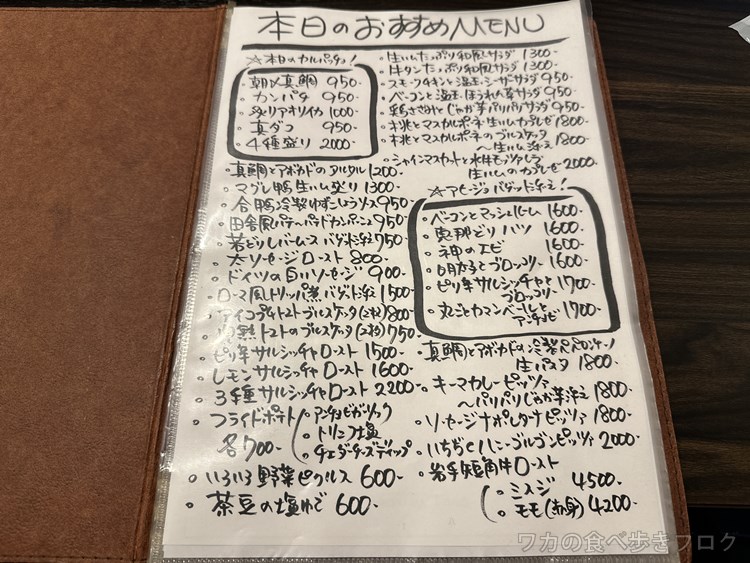 本日のおすすめMENU
☆本日のカルパッチョ!
・朝〆真鯛 950-
・カンパチ 950-
・炙りアオリイカ 1000
・真ダコ 950-
・4種盛り 2000-
・真鯛とアボカドのタルタル 1200-
・マグレ鴨生ハム盛り 1300-
・合鴨冷製ゆずこしょうソース 950
・田舎風パテ〜パテドカンパーニュ 950
・若どりレバームース バゲット添え 750
・太ソーセージロースト 800-
・ドイツの白いソーセージ 900-
・ローマ風トリッパ煮 バゲット添え 1500
・アイコプチトマトブルスケッタ(2枚) 800
熟トマトのブルスケッタ(2枚) 750
・ピリ辛サルシッチャロースト 1500-
・レモンサルシッチャロースト 1600-
・3種サルシッチャロースト 2200-
・フライドポテト
各700-
・アンチョビガーリック
・トリュフ塩
・チェダーチーズディップ
・いろいろ野菜ピクルス 600-
・茶豆の塩ゆで 600-
・生ハムたっぷり和風サラダ 1300-
・牛タンたっぷり和風サラダ 1300-
・スモークチキンと温玉シーザーサラダ 950-
・ベーコンと温玉ほうれん草サラダ 950-
・鶏ささみとじゃが芋パリパリサラダ 950-
・桃とマスカルポーネ生ハムカプレーゼ 1800-
・桃とマスカルポーネのブルスケッタ
〜生ハム添え 1800-
・シャインマスカットと水牛モッツァレラ
生ハムのカプレーゼ 2000-
☆アヒージョバゲット添え!
・ベーコンとマッシュルーム 1600-
・恵那どりハツ 1600-
・神のエビ 1600-
・明太子とブロッコリー 1600-
・ピリ辛サルシッチャと
ブロッコリー 1700-
・丸ごとカマンベールと
アンチョビ 1700-
・真鯛とアボカドの冷製
生パスタ 1800-
・キーマカレーピッツァ
〜パリパリじゃが芋添え 1800
・ソーセージナポレターナピッツァ 1800-
・いちぢくハニーゴルゴンピッツァ 2000-
・岩手短角牛ロースト
・ミスジ 4500-
・モモ(赤身) 4200-
ワカの食べ歩きブログ